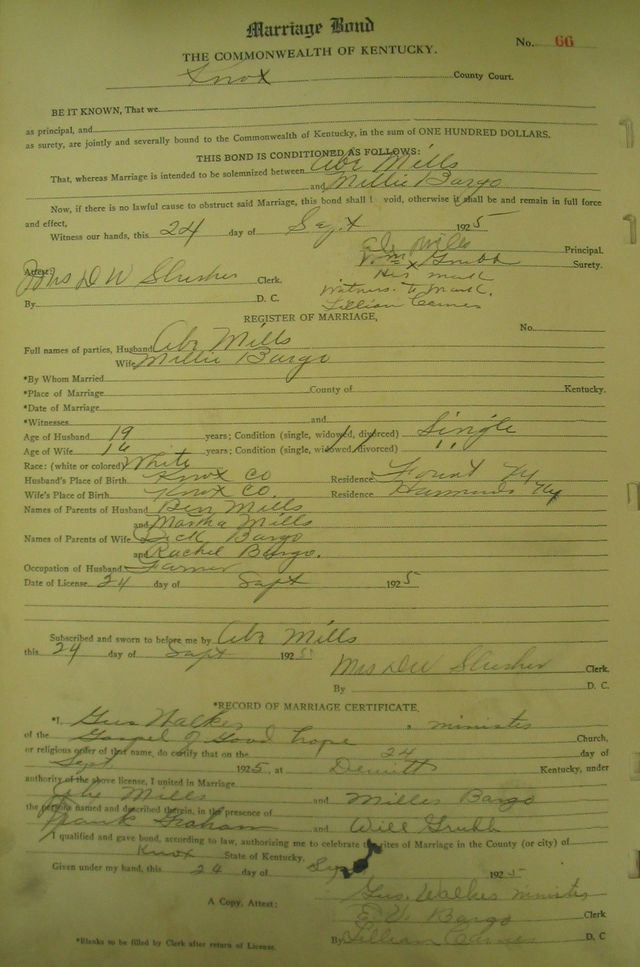 Marriage Bond
No. 66
THE COMMONWEALTH OF KENTUCKY.
Knox County Court.
BE IT KNOWN, That we
as principal, and
as surety, are jointly and severally bound to the Commonwealth of Kentucky, in the sum of ONE HUNDRED DOLLARS.
THIS BOND IS CONDITIONED AS FOLLOWS:
That, whereas Marriage is intended to be solemnized between Abe Mills
and Millie Bargo
Now, if there is no lawful cause to obstruct said Marriage, this bond shall be void, otherwise it shall be and remain in full force
and effect,
Witness our hands, this 24 day of Sept 1925
Abe Mills Principal.
Wm x Grubb Surety.
His mark
Attest: Mrs D W Slusher Clerk.
Witness. To Mark.
By D. C.
Lillian Carnes
REGISTER OF MARRIAGE,
No.
Full names of parties, Husband Abe Mills
Wife Millie Bargo
*By Whom Married
*Place of Marriage County of Kentucky.
*Date of Marriage
*Witnesses and
Age of Husband 19 years; Condition (single, widowed, divorced) Single
Age of Wife 16 years; Condition (single, widowed, divorced) " "
Race: (white or colored) White
Husband's Place of Birth Knox Co Residence Ky
Wife's Place of Birth Knox Co. Residence Hammonds Ky
Names of Parents of Husband Ben Mills
and Martha Mills
Names of Parents of Wife Dick Bargo
and Rachel Bargo.
Occupation of Husband Farmer
Date of License 24 day of Sept 1925
Subscribed and sworn to before me by Abe Mills
this 24 day of Sept 1925
Mrs D W Slusher Clerk.
By D. C.
*RECORD OF MARRIAGE CERTIFICATE.
*I, Gus Walker, minister
of the Gospel of Good hope Church,
or religious order of that name, do certify that on the 24 day of
Sept 1925, at Dewitt Kentucky, under
authority of the above license, I united in Marriage
Abe Mills and Milles Bargo
the persons named and described therein, in the presence of
Frank Graham and Will Grubb
I qualified and gave bond, according to law, authorizing me to celebrate the rites of Marriage in the County (or city) of
Knox State of Kentucky,
Given under my hand, this 24 day of Sept 1925
Gus. Walker minister
A Copy, Attest: E. W. Bargo Clerk
By Lillian Carnes D. C
*Blanks to be filled by Clerk after return of License.